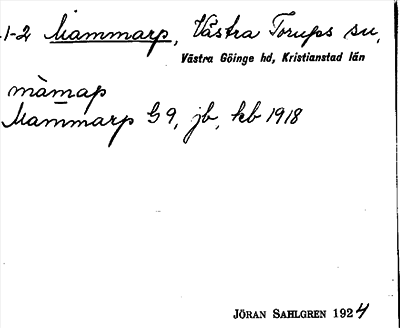 1-2 Mammarp, Västra Torups sn,
Västra Göinge hd, Kristianstad län
màmap
Mammarp G 9, jb, kb 1918
JÖRAN SAHLGREN 1924